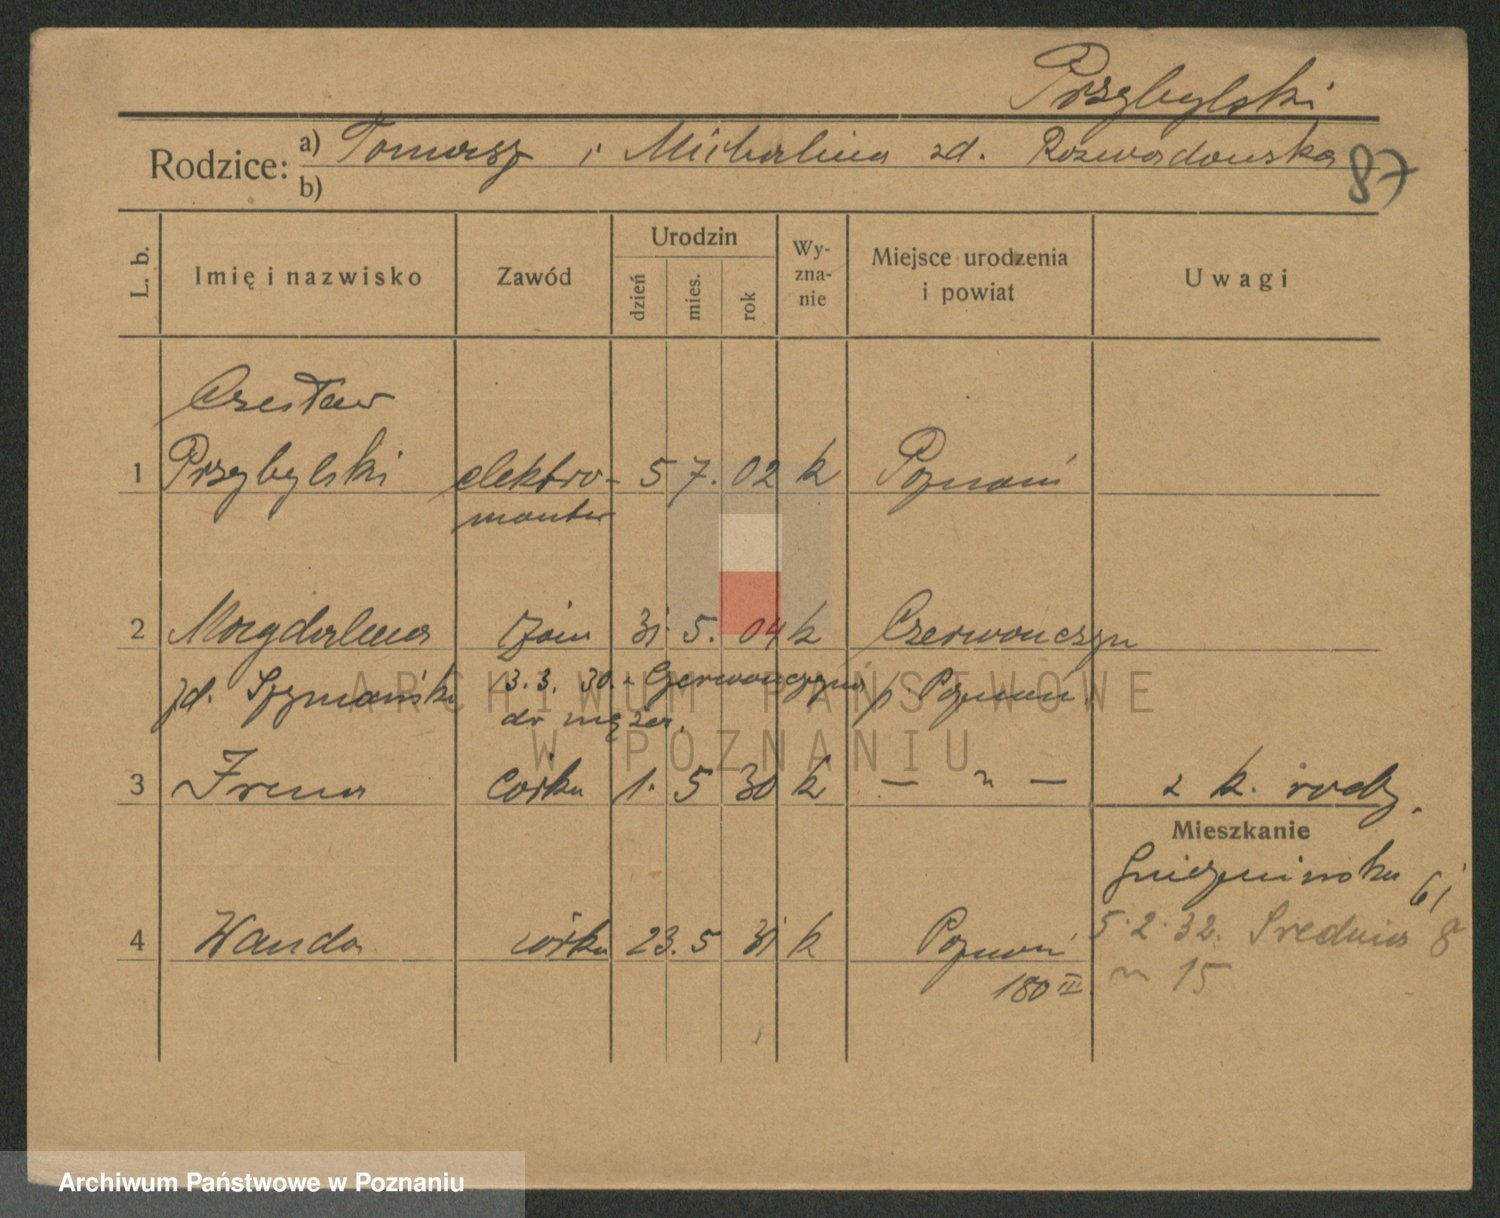 Przybylski
Rodzice: a) Tomasz i Michalina zd. Rozwadowska
87
b)
L. b.
Imię i nazwisko
Zawód
Urodzin
dzień
mies.
rok
Wy-
zna-
nie
Miejsce urodzenia
i powiat
Uwagi
Czesław
1 Przybylski elektro- 5 7. 02 k Poznań
monter
2 Magdalena 31. 5. 04 k Czerwończyn
zd. Szymańska 3. 3. 30. z Czerwończyna p. Poznań.
do męża.
ARCHIWUM PAŃSTWOWE
W POZNANIU
3 Irena córka 1. 5 30 k — " — z k. rodz.
Mieszkanie
Gnieźnieńska 61
4 Wanda córka 23. 5 31 k Poznań
5.2.32. Średnia 8
180 III
m 15
Archiwum Państwowe w Poznaniu